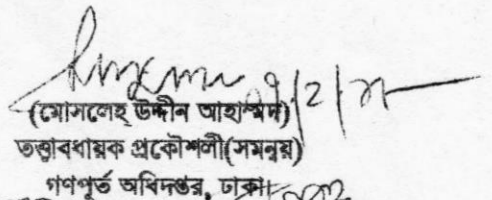 (মোসলেহ উদ্দীন আহাম্মদ)
তত্ত্বাবধায়ক প্রকৌশলী(সমন্বয়)
গণপূর্ত অধিদপ্তর, ঢাকা।